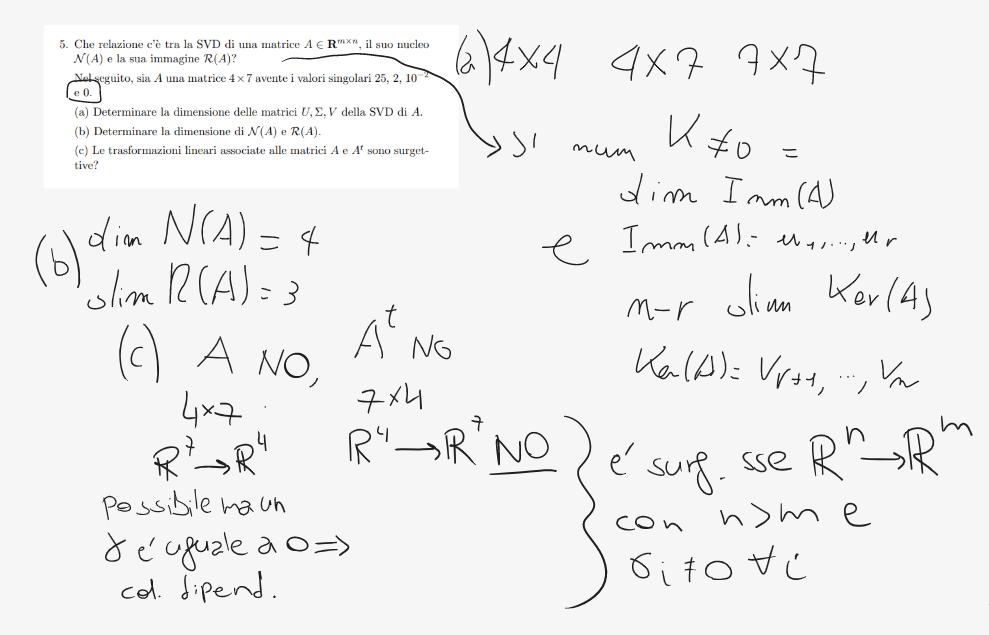 5. Che relazione c'è tra la SVD di una matrice A ∈ R^{m×n}, il suo nucleo
N(A) e la sua immagine R(A)?
Nel seguito, sia A una matrice 4 × 7 avente i valori singolari 25, 2, 10^{-2}
e 0.
(a) Determinare la dimensione delle matrici U, Σ, V della SVD di A.
(b) Determinare la dimensione di N(A) e R(A).
(c) Le trasformazioni lineari associate alle matrici A e A^t sono surget-
tive?
(a) 4×4 4×7 7×7
sì num K ≠0 =
dim Imm(A)
e Imm(A)= u_1,...,u_r
n-r dim Ker(A)
Ker(A)= V_{r+1}, ..., V_n
(b) dim N(A) = 4
dim R(A) = 3
(c) A NO, A^t NO
4×7 7×4
R^7→R^4 R^4→R^7 NO
possibile ma un
γ è uguale a 0 =>
col. dipend.
é surg. sse R^n→R^m
con n>m e
σi ≠0 ∀ i